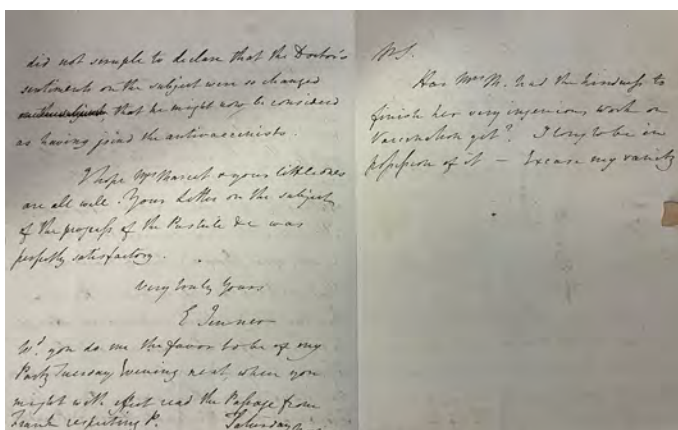 did not scruple to declare that the Doctor's
sentiments on the subject were so changed
on the subject that he might now be considered
as having joind the antivaccinists.
I hope Mrs Marcet & your little ones
are all well. Your Letter on the subject
of the progress of the Pustule &c was
perfectly satisfactory.
Very truly Yours
E Jenner
Wd. you do me the favor to be of my
Party Tuesday Evening next, when you
might with effect read the Passage from
Frank respecting P.
Saturday
PS.
Has Mrs M. had the kindness to
finish her very ingenious work on
Vaccination yet? I long to be in
possession of it — Excuse my vanity